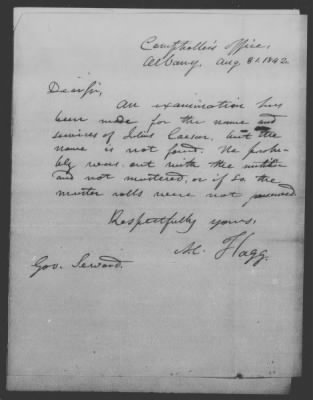 Comptroller's office,
Albany, Aug 31. 1842.
Dear Sir,
An examination has
been made for the name and
services of Julius Caesar, but the
name is not found. He proba-
bly was out with the militia
and not mustered, or if so the
muster rolls were not preserved.
Respectfully yours,
A. C. Flagg.
Gov. Seward.